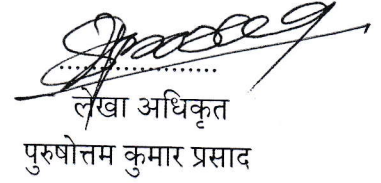 लेखा अधिकृत
पुरुषोत्तम कुमार प्रसाद